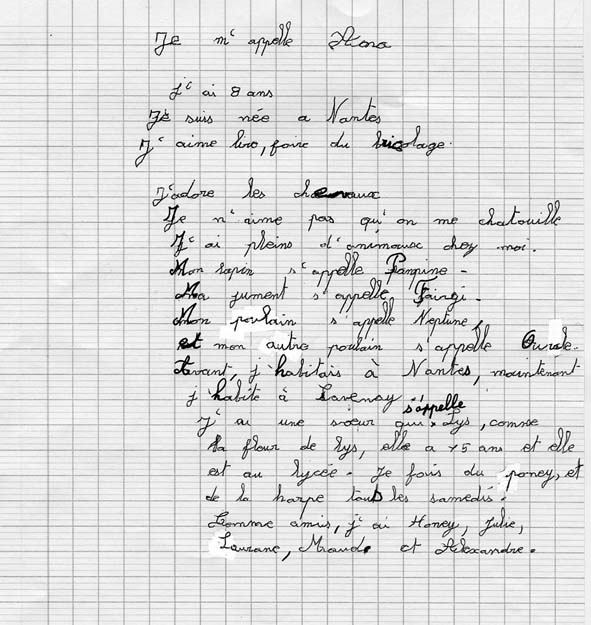 Je m'appelle
j'ai 8 ans
Je suis née a Nantes
J'aime lire, faire du bricolage.
J'adore les chevaux
Je n'aime pas qu'on me chatouille
J'ai pleins d'animaux chez moi.
Mon lapin s'appelle Panpine -
Ma jument s'appelle
Mon poulain s'appelle Neptune,
et mon autre poulain s'appelle
Avant, j'habitais à Nantes, maintenant
j'habite à Savenay s'appelle
J'ai une sœur qui Lys, comme
la fleur de lys, elle a 15 ans et elle
est au lycée - Je fais du poney, et
de la harpe tous les samedis.
Comme amis, j'ai Honey, Julie,
Maud, et Alexandre.